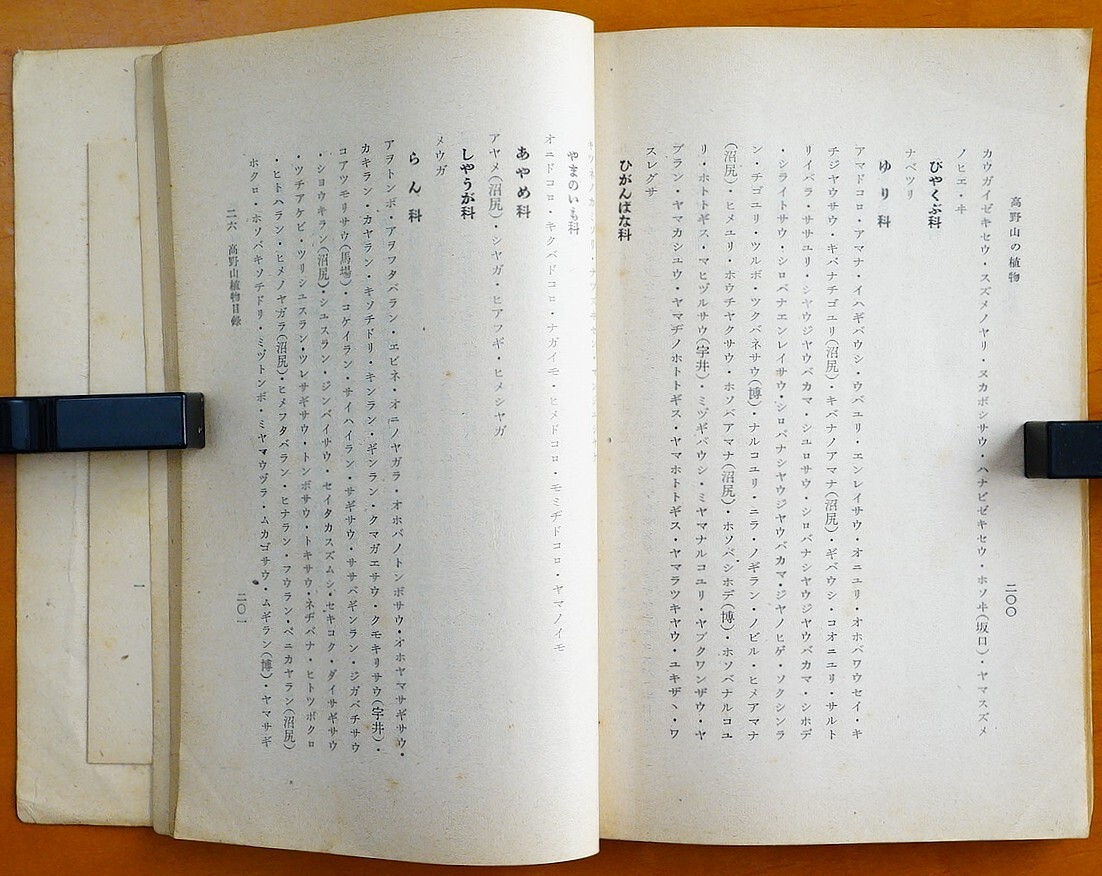 高野山の植物
二〇〇
カウガイゼキセウ・スズメノヤリ・スカボシサウ・ハナビゼキセウ・ホソヰ(坂口)・ヤマスズメ
ノヒエ・ヰ
びやくぶ科
ナベワリ
ゆり科
アマドコロ・アマナ・イハギバウシ・ウバユリ・エンレイサウ・オニユリ・オホバワウセイ・キ
チジヤウサウ・キバナチゴユリ(沼尻)・キバナノアマナ(沼尻)・ギバウシ・コオニユリ・サルト
リイバラ・ササユリ・シヤウジヤウバカマ・シユロサウ・シロバナシヤウジヤウバカマ・シホデ
・シライトサウ・シロバナエンレイサウ・シロバナシヤウジヤウバカマ・ジヤノヒゲ・ソクシンラ
ン・チゴユリ・ツルボ・ツクバネサウ(博)・ナルコユリ・ニラ・ノギラン・ノビル・ヒメアマナ
(沼尻)・ヒメユリ・ホウチヤクサウ・ホソバアマナ(沼尻)・ホソベシホデ(博)・ホソバナルコユ
リ・ホトトギス・マヒヅルサウ(宇井)・ミヅギバウシ・ミヤマナルコユリ・ヤブクワンザウ・ヤ
ブラン・ヤマカシユウ・ヤマヂノホトトギス・ヤマホトトギス・ヤマラツキヤウ・ユキザヽ・ワ
スレグサ
ひがんばな科
やまのいも科
オニドコロ・キクバドコロ・ナガイモ・ヒメドコロ・モミヂドコロ・ヤマノイモ
あやめ科
アヤメ(沼尻)・シヤガ・ヒアフギ・ヒメシヤガ
しやうが科
メウガ
らん科
アヲトンボ・アヲフタバラン・エビネ・オニノヤガラ・オホバノトンボサウ・オホヤマサギサウ・
カキラン・カヤラン・キソチドリ・キンラン・ギンラン・クマガエサウ・クモキリサウ(宇井)・
コアツモリサウ(馬場)・コケイラン・サイハイラン・サギサウ・ササバギンラン・ジガバチサウ
・シヨウキラン(沼尻)・シユスラン・ジンバイサウ・セイタカスズムシ・セキコク・ダイサギサウ
・ツチアケビ・ツリシユスラン・ツレサギサウ・トンボサウ・トキサウ・ネヂバナ・ヒトツボクロ
・ヒトハラン・ヒメノヤガラ(沼尻)・ヒメフタバラン・ヒナラン・フウラン・ベニカヤラン(沼尻)
ホクロ・ホソバキソチドリ・ミヅトンボ・ミヤマウヅラ・ムカゴサウ・ムギラン(博)・ヤマサギ
二六 高野山植物目錄
二〇一
一